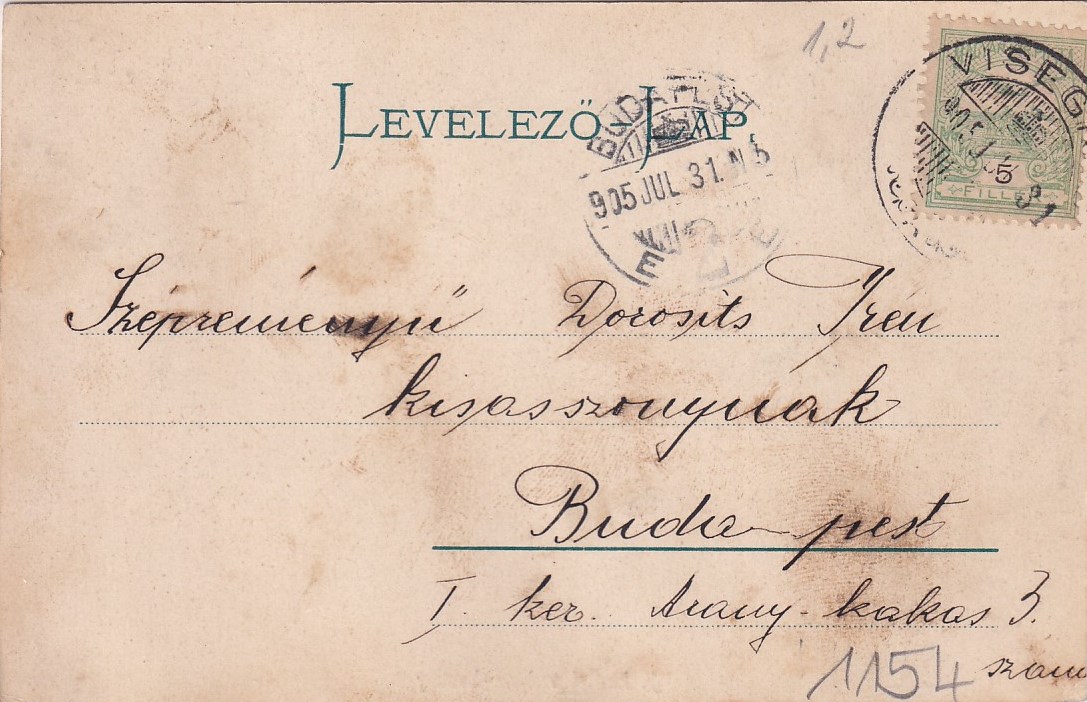 1,2
LEVELEZŐ LAP
VISEG
905 JUL 31
5
FILLÉR
BUDA
905 JUL 31. N 5
Szépreményű Dorosits Irén
kisasszonynak
Buda-pest
I. ker. Arany-kakas 3.
szám
1154